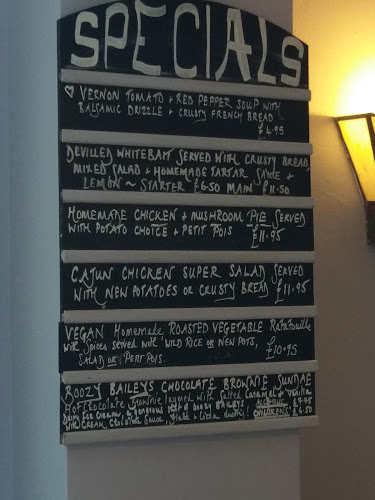 SPECIALS
♡ VERNON TOMATO + RED PEPPER SOUP WITH
BALSAMIC DRIZZLE + CRUSTY FRENCH BREAD
£4.95
DEVILLED WHITEBAIT SERVED WITH CRUSTY BREAD,
MIXED SALAD + HOMEMADE TARTAR SAUCE +
LEMON ~ STARTER £6.50 MAIN £11.50
HOMEMADE CHICKEN + MUSHROOM PIE SERVED
WITH POTATO CHOICE + PETIT POIS £11.95
CAJUN CHICKEN SUPER SALAD SERVED
WITH NEW POTATOES OR CRUSTY BREAD £11.95
VEGAN Homemade ROASTED VEGETABLE Ratatouille
with Spices served with WILD RICE or NEW POTS,
SALAD OR PETIT POIS. £10.95
BOOZY BAILEYS CHOCOLATE BROWNIE SUNDAE
Hot Chocolate Brownie layered with Salted Caramel + Vanilla
Dairy Ice Cream, a generous BAILEYS £7.95
WITH CREAM, Chocolate Sauce, Flake + CHILDRENS £6.50